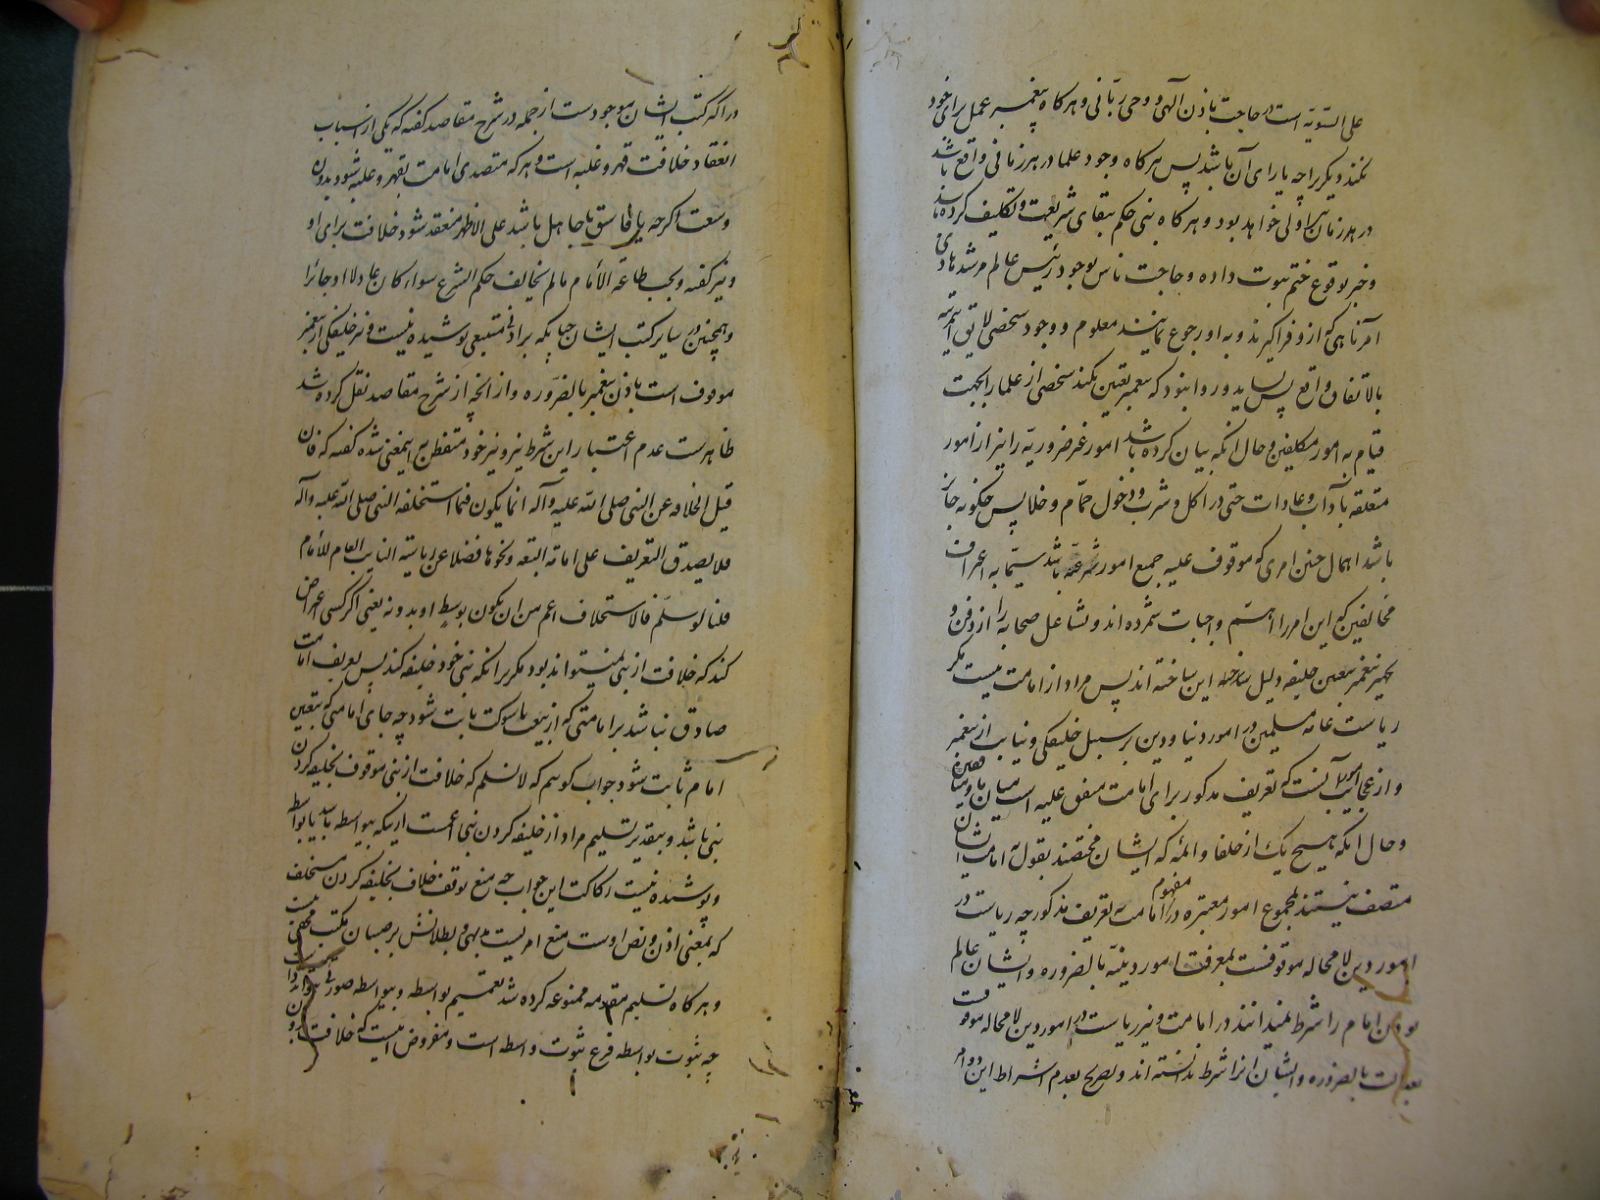 علی السّویّه است در حاجت باذن آلهی و وحی ربّانی و هرکاه پیغمبر عمل برای خود
نکند دیکریرا چه یارای آن باشد پس هرکاه وجود علما در هر زمانی واقع باشد
در هر زمان اولی خواهد بود و هرکاه نبی حکم ببقای شریعت و تکلیف کرده باشد
و خبر بوقوع ختم نبوت داده و حاجت ناس بوجود رئیس عالم مرشد هادی
آمر ناهی که ازو فراکیرند و به او رجوع نمایند معلوم و وجود شخصی لایق این مرتبه
بالاتفاق واقع پس نباید و روا نبود که پیغمبر تعیین نکند شخصی از علما را بجهت
قیام به امور مکلفین و حال انکه بیان کرده باشد امور غیر ضروریّه را نیز از امور
متعلقه بآداب و عادات حتی در اکل و شرب و دخول حمّام و خلا پس چکونه جایز
باشد اهمال چنین امری که موقوف علیه جمیع امور شرعیّه باشد سیّما به اعتراف
مخالفین که این امر را اهمّ واجبات شمرده اند و تشاغل صحابه را از دفن و
تجهیز پیغمبر بتعیین خلیفه دلیل بر این ساخته اند پس مراد از امامت نیست مکر
ریاست عامه مسلمین در امور دنیا و دین بر سبیل خلیفکی و نیابت از پیغمبر
و از عجایب امور آنست که تعریف مذکور برای امامت متفق علیه است میان ما و مخالفین
و حال انکه هیچ یک از خلفا و ائمّه که ایشان مختصند بقول به امامت ایشان
متصف نیستند بمجموع امور معتبره در مفهوم امامت به تعریف مذکور چه ریاست در
امور دین لا محاله موقوفست بمعرفت امور دینیّه بالضروره و ایشان عالم
بودن امام را شرط نمیدانند در امامت و نیز ریاست در امور دین لا محاله موقوفست
بعدالت بالضروره و ایشان انرا شرط ندانسته اند و تصریح بعدم اشتراط این دو امر
در اکثر کتب ایشان موجودست از جمله در شرح مقاصد کفته که یکی از اسباب
انعقاد خلافت قهر و غلبه است و هر که متصدی امامت بقهر و غلبه شود بدون
وسعت اکرچه فاسق یا جاهل باشد علی الاظهر منعقد شود خلافت برای او
و نیز کفته و یجب طاعة الأمام مالم یخالف حکم الشرع سواء کان عادلا او جائرا
و همچنین در سایر کتب ایشان چنانکه بر ادنی متتبعی پوشیده نیست و نیز خلیفکی از پیغمبر
موقوف است باذن پیغمبر بالضروره و از انچه از شرح مقاصد نقل کرده شد
ظاهرست عدم اعتبار این شرط نیز و نیز خود متفطن به این معنی شده کفته که فان
قیل الخلافه عن النبی صلی الله علیه و آله انما یکون فیما استخلفه النبی صلی الله علیه و آله
فلا یصدق التعریف علی امامة البیعه و نحوها فضلا عن ریاسته النایب العام للأمام
قلنا لو سلّم فالاستخلاف اعم من ان یکون بوسط او بدونه یعنی اکر کسی اعتراض
کند که خلافت از نبی نمیتواند بود مکر برانکه نبی خود خلیفه کند پس تعریف امامت
صادق نباشد بر امامتی که از بیعت یا شوکت ثابت شود چه جای امامتی که بتعیین
امام ثابت شود جواب کوییم که لا نسلم که خلافت از نبی موقوف بخلیفه کردن
نبی باشد و بتقدیر تسلیم مراد از خلیفه کردن نبی اعمست ازینکه بیواسطه باشد یا بواسطه
و پوشیده نیست رکاکت این جواب چه منع توقف خلافت بخلیفه کردن مستخلف
که بمعنی اذن و نص اوست منع امریست بدیهی و بطلانش بر صبیان مکتب مخفی نیست
و هرکاه تسلیم مقدمه ممنوعه کرده شد تعمیم بواسطه و بیواسطه صورتی
چه ثبوت بواسطه فرع ثبوت واسطه است و مفروض اینست که خلافت